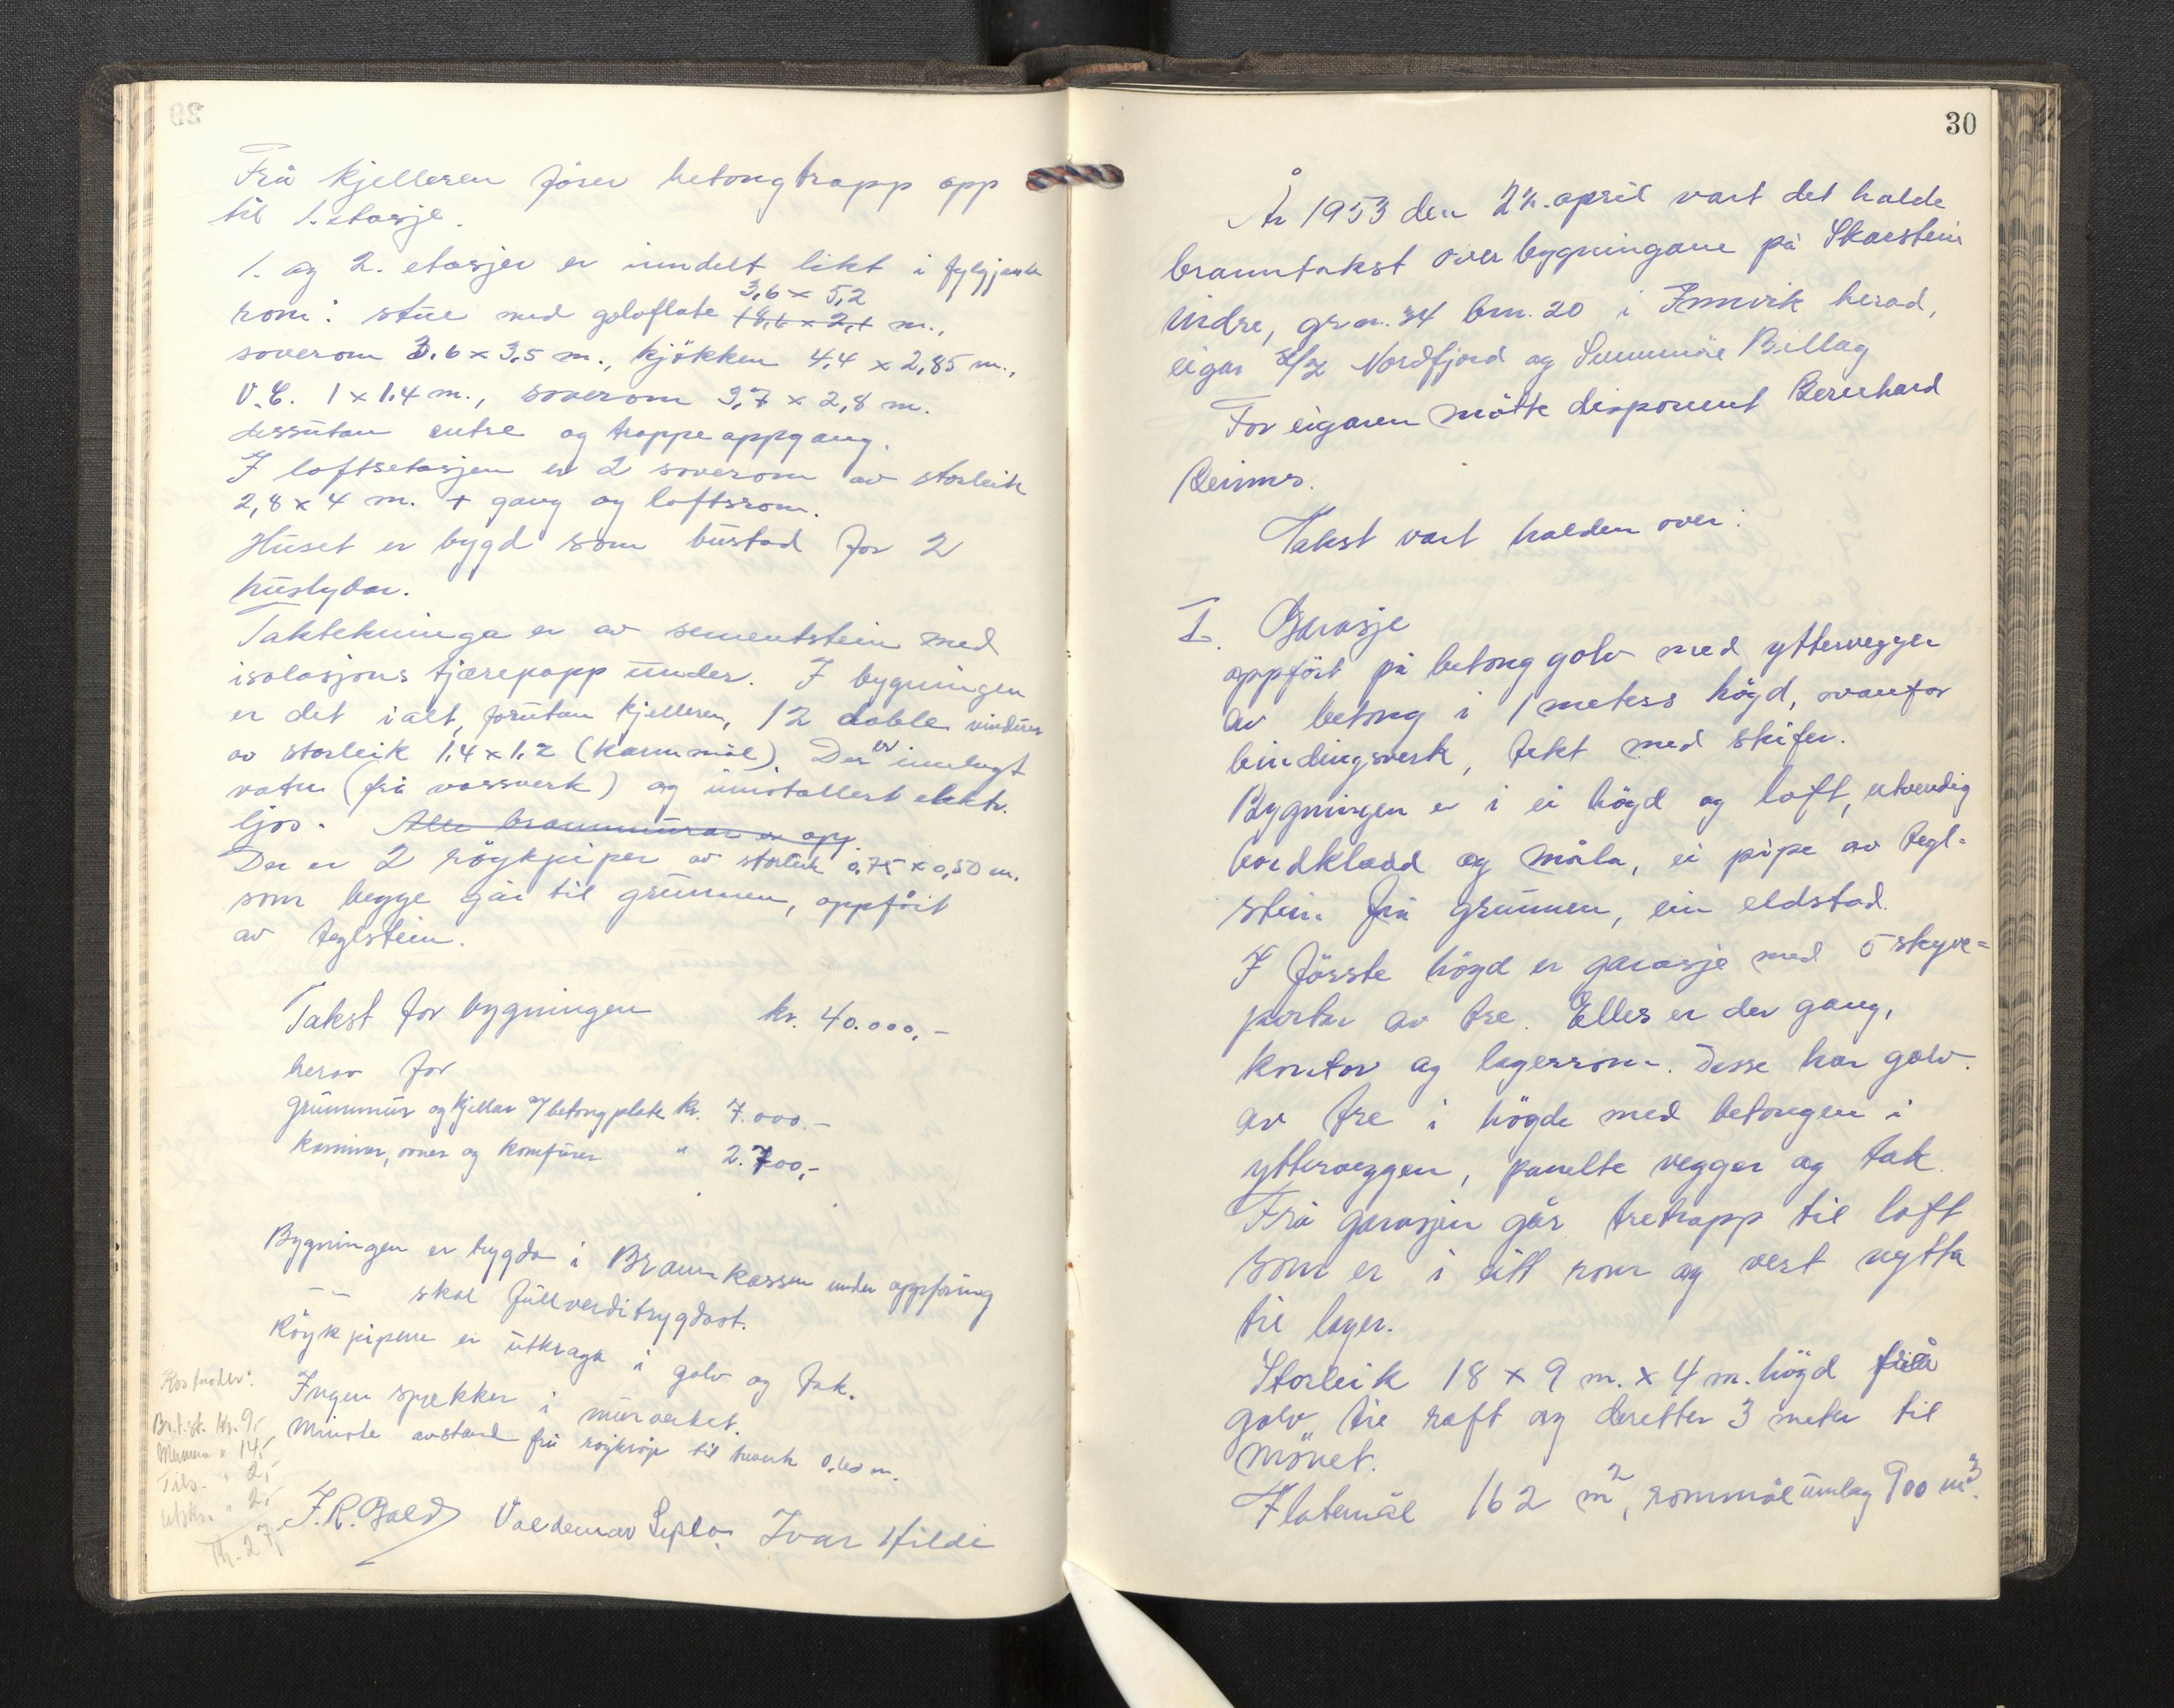 Frå kjelleren förer betongtrapp opp
til 1. etasje.
1. og 2. etasjer er inndelt likt i fylgjande
rom: stue med golvflate 3,6 x 5,2 m.,
soverom 3.6 x 3,5 m., kjökken 4,4 x 2,85 m.,
V.C. 1 x 1.4 m., soverom 3,7 x 2,8 m.
dessutan entre og trappeoppgang.
I loftsetasjen er 2 soverom av storleik
2,8 x 4 m. + gang og loftsrom.
Huset er bygd som bustad for 2
huslydar.
Taktekninga er av sementstein med
isolasjons tjærepapp under. I bygningen
er det ialt, forutan kjelleren, 12 doble vinduer
av storleik 1,4 x 1,2 (karmmål). Der er innlagt
vatn (frå vassverk) og innstallert elektr.
ljos. Alle brannmurar er opp
Der er 2 röykpiper av storleik 0,75 x 0,50 m.
som begge går til grunnen, oppfört
av teglstein.
Takst for bygningen kr. 40.000,-
herav for
grunnmur og kjellar m/betongplate kr. 7.000.-
kaminar, ovner og komfürer " 2.700,-
Bygningen er trygda i Brannkassen under oppföring
-- skal fullverditrygdast.
Röykpipene er utkraga i golv og tak.
Ingen sprekker i murverket.
Minste avstand frå röykrör til treverk 0,60 m.
Kostnader:
Br.t.st. kr. 9,-
" 14,-
Tils. " 2,-
Utskr. " 2,-
Kr. 27,-
J.R. Bald Valdemar Seplo. Ivar Hilde
30
År 1953 den 24. april vart det halde
branntakst over bygningane på Skarstein
indre, gr.n. 34 bn. 20 i Innvik herad,
eigar A/L Nordfjord og Sunnmöre Billag
For eigaren mötte disponent Bernhard
Reinnes.
Takst vart halden over:
I. Garasje
oppfört på betonggolv med yttervegger
av betong i 1 meters högd, ovanfor
bindingsverk, tekt med skifer.
Bygningen er i ei högd og loft, utvendig
bordkledd og måla, ei pipe av tegl-
stein frå grunnen, ein eldstad.
I förste högd er garasje med 5 skyve-
portar av tre. Elles er der gang,
kontor og lagerrom. Desse har golv
av tre i högde med betongen i
ytterveggen, panelte vegger og tak.
Frå garasjen går tretrapp til loft
som er i eitt rom og vert nytta
til lager.
Storleik 18 x 9 m. x 4 m. högd frå
golv til raft og deretter 3 meter til
mönet.
Flatemål 162 m², rommål umlag 900 m³.